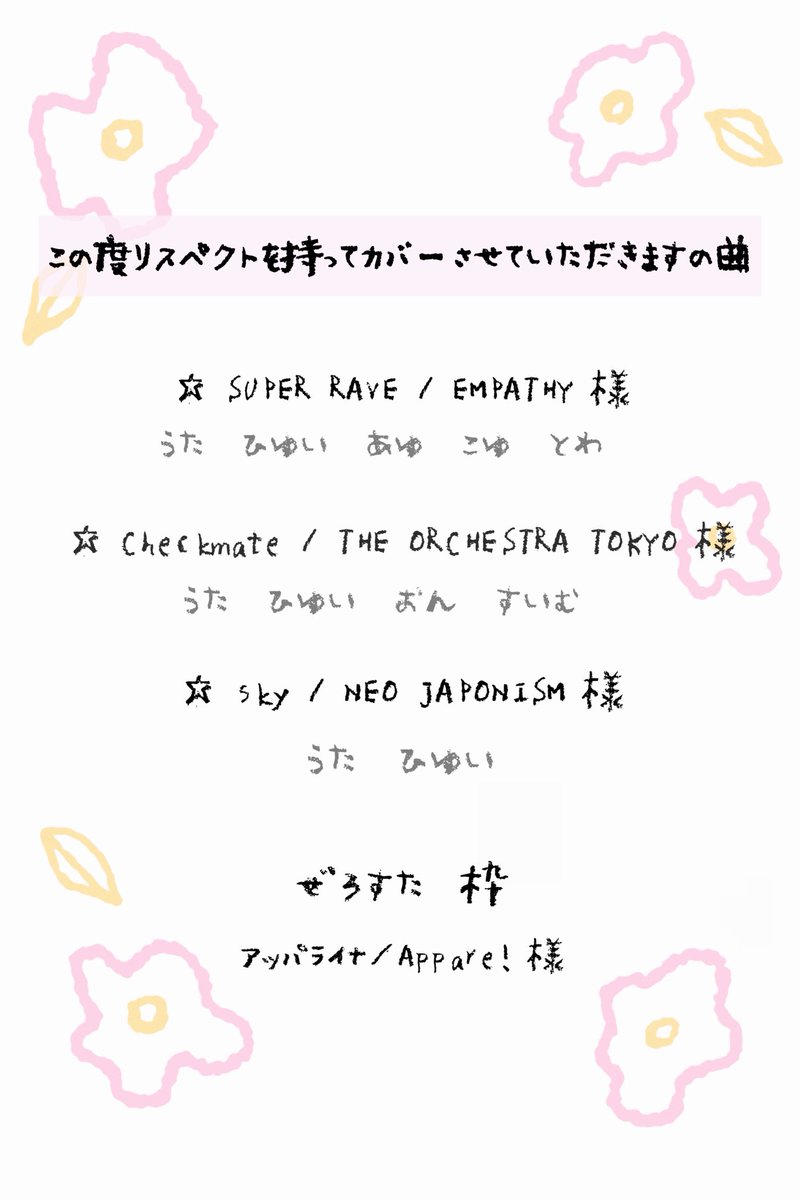 この度リスペクトを持ってカバーさせていただきますの曲
☆ SUPER RAVE / EMPATHY 様
うた ひゆい あゆ こゆ とわ
☆ Checkmate / THE ORCHESTRA TOKYO 様
うた ひゆい おん すいむ
☆ sky / NEO JAPONISM 様
うた ひゆい
ぜろすた 枠
アッパライナ/Appare! 様